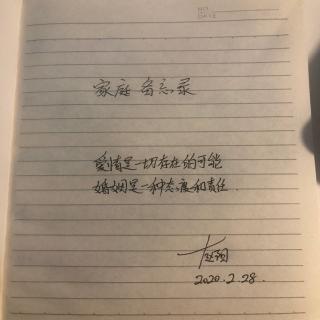 家庭备忘录
爱情是一切存在的可能
婚姻是一种态度和责任.
2020.2.28.